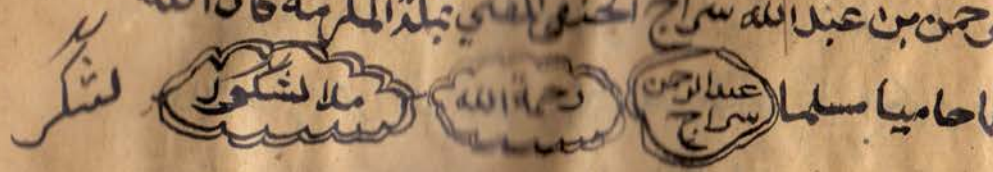 حمن بن عبد الله سراج الحنفي المفتي بمكة المكرمة كان الله
حاميا مسلما عبد الرحمن سراج رحمة الله ملا لشكور لشكر